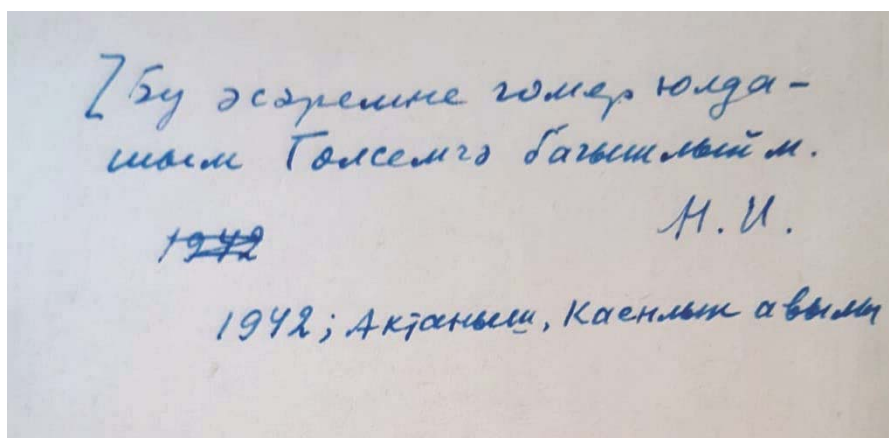 [Бу әсәремне гомер юлда-
шым Гөлсемгә багышлыйм.
Н. И.
1942
1942; Актаныш, Каенлык авылы